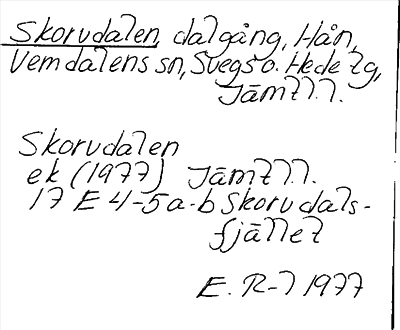 Skorudalen, dalgång, Hån,
Vemdalens sn, Svegs o. Hede tg,
Jämtl.l.
Skorudalen
ek (1977) Jämtl.l.
17 E 4-5 a-b Skorudals-
fjället
E. R-l 1977